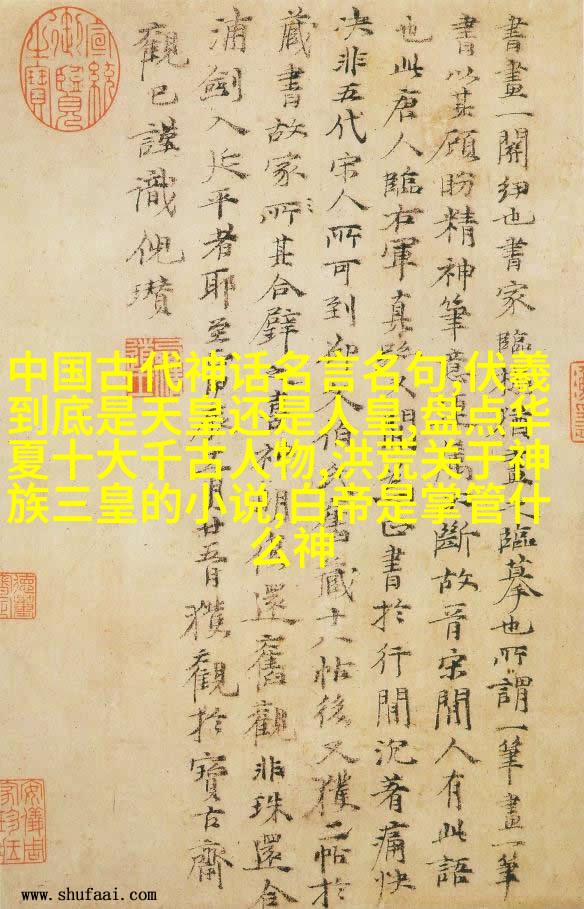 書畫一關紐也書家臨皆畫臨摹也所謂一筆畫一筆
書以其顧盼精神筆意焉斷故晉宋間人有此語
也此唐人臨右軍真書於行間沉著痛快
决非五代宋人所可到伯舊藏十八帖後又獲二帖於
藏書故家所其合璧舊神明還舊觀非珠還合
浦劍入延平者耶至月廿五日獲觀於寶古齋
觀已謹識倪瓚
宣統御覽之寶
中国古代神话名言名句,伏羲
到底是天皇还是人皇,盘点华
夏十大千古人物,洪荒关于神
族三皇的小说,白帝是掌管什
么神
安儀周家珍藏
www.shufaai.com